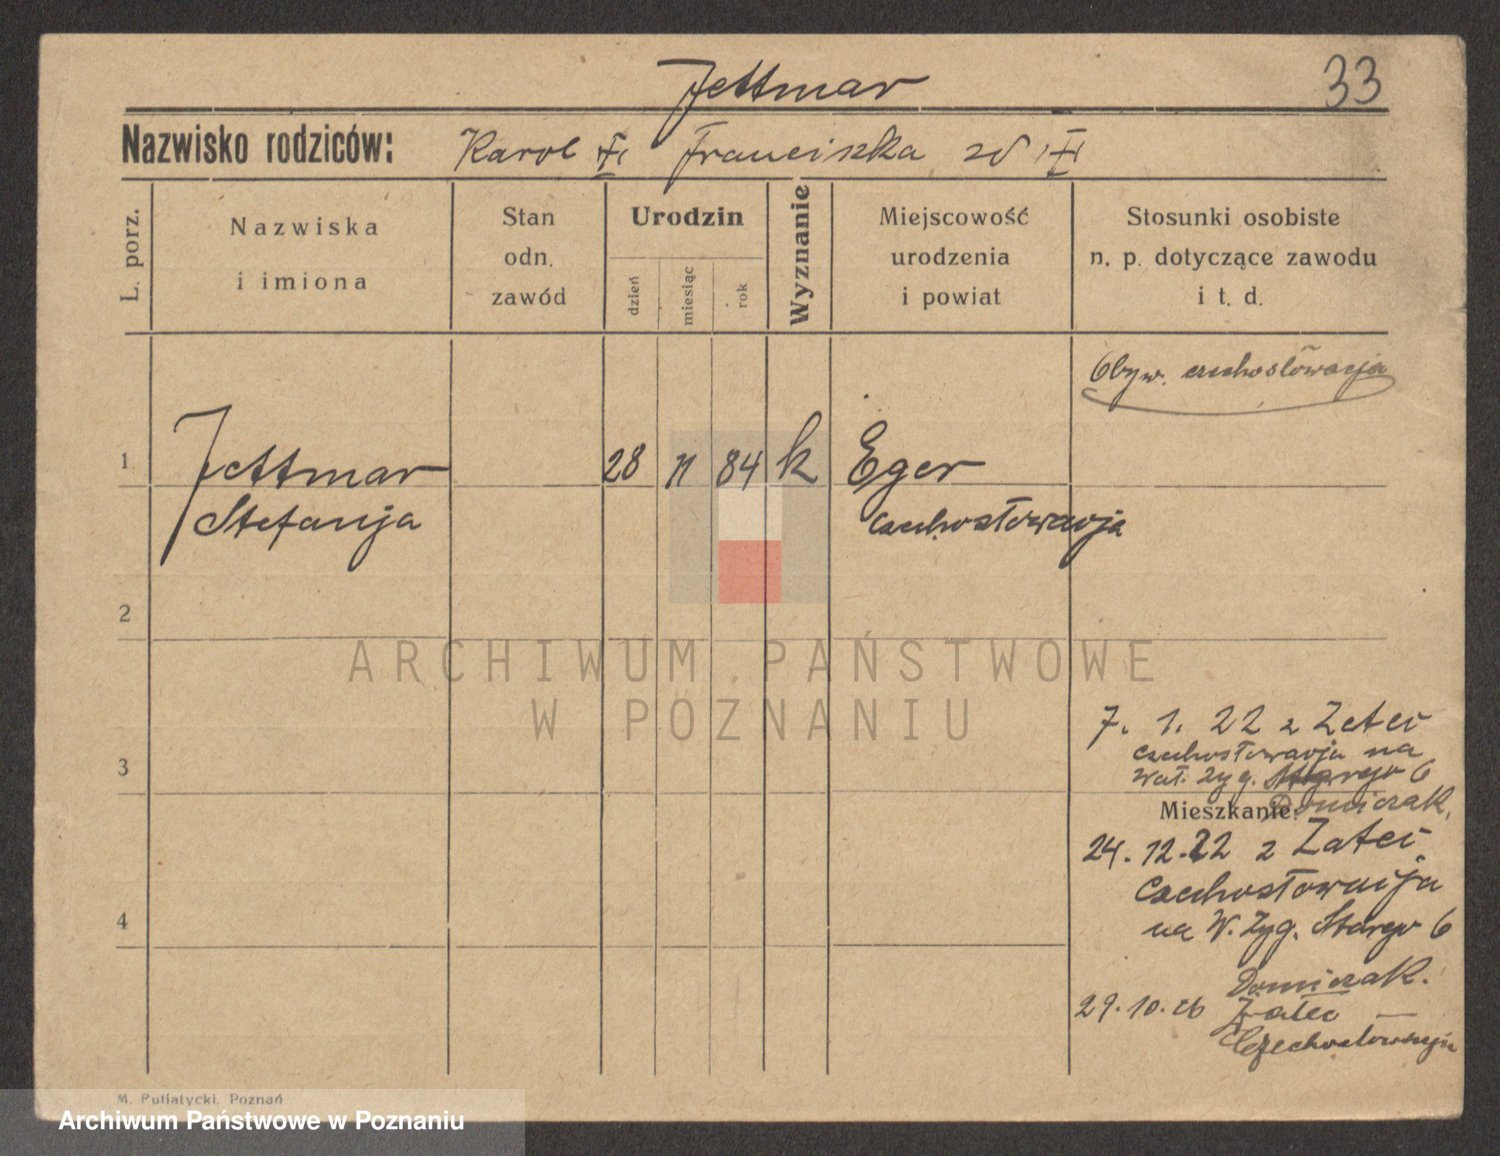 Jettmar
33
Nazwisko rodziców: Karol Franciszka
L. porz.
Nazwiska
i imiona
Stan
odn.
zawód
Urodzin
dzień
miesiąc
rok
Wyznanie
Miejscowość
urodzenia
i powiat
Stosunki osobiste
n. p. dotyczące zawodu
i t. d.
Obyw. czechosłowacja
1 Jettmar 28 11 84 k Eger
Stefanja czechosłowacja
2
ARCHIWUM PAŃSTWOWE
W POZNANIU
7. 1. 22 z Zatec
czechosłowacja na
3
Wał. Zyg. Starego 6
Mieszkanie: Domiczak.
24. 12. 22 z Zatec
Czechosłowacja
4
na W. Zyg. Starego 6
Domiczak.
29. 10. 26 Zatec —
Czechosłowacja
M. Putiatycki, Poznań
Archiwum Państwowe w Poznaniu